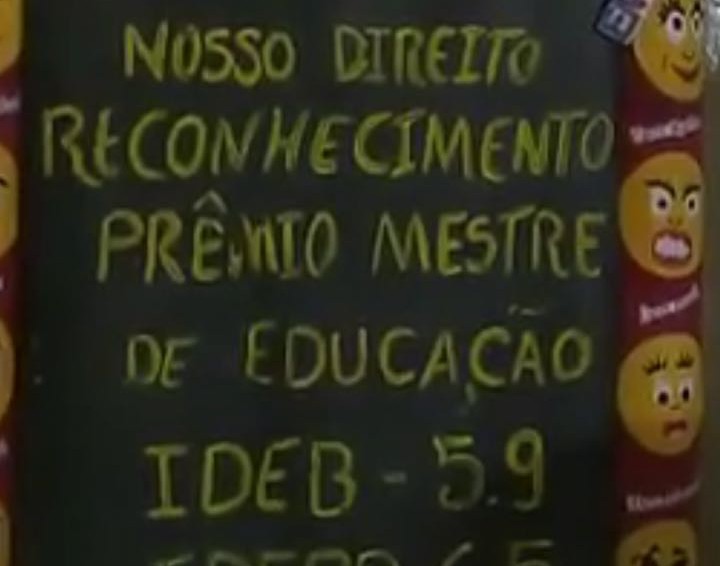 NOSSO DIREITO
RECONHECIMENTO
PRÊMIO MESTRE
DE EDUCAÇÃO
IDEB - 5.9